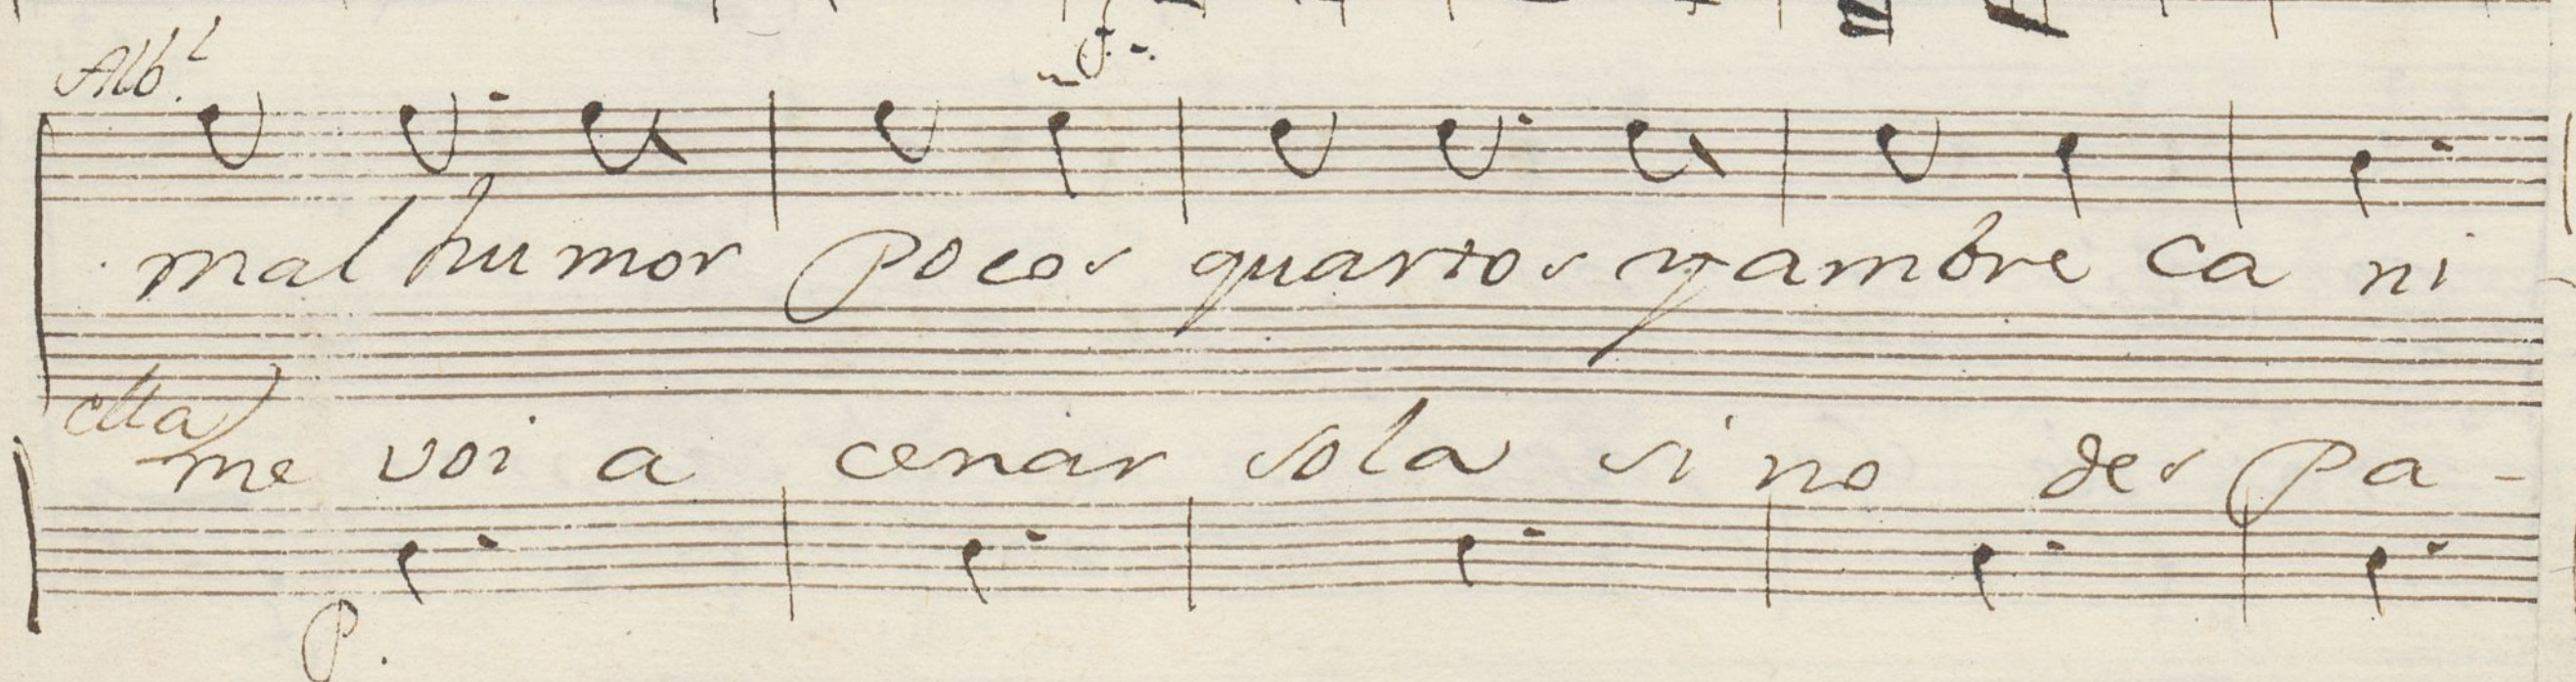 f.
Alb.l
mal hu mor pocos quartos y ambre ca ni
Ma
me voi a cenar sola si no des pa -
P.